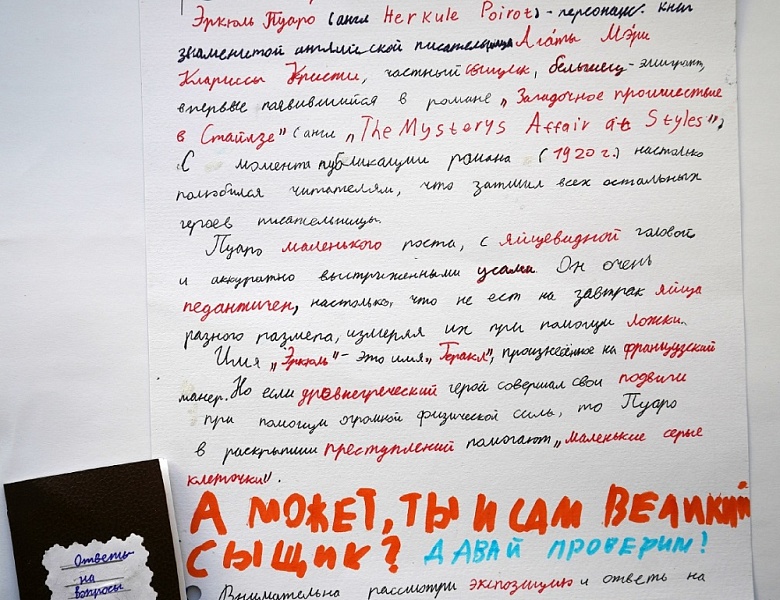 Эркюль Пуаро (англ Herkule Poirot) - персонаж книг
знаменитой английской писательницы Агаты Мэри
Клариссы Кристи, частный сыщик, бельгиец-эмигрант,
впервые появившийся в романе „Загадочное происшествие
в Стайлзе" (англ „The Mysterys Affair at Styles")
С момента публикации романа (1920 г.) настолько
полюбился читателям, что затмил всех остальных
героев писательницы.
Пуаро маленького роста, с яйцевидной головой
и аккуратно выстриженными усами. Он очень
педантичен, настолько, что не ест на завтрак яйца
разного размера, измеряя их при помощи ложки.
Имя „Эркюль" - это имя „Геракл", произнесённое на французский
манер. Но если древнегреческий герой совершал свои подвиги
при помощи огромной физической силы, то Пуаро
в раскрытии преступлений помогают „маленькие серые
клеточки".
А МОЖЕТ, ТЫ И САМ ВЕЛИКИЙ
СЫЩИК? ДАВАЙ ПРОВЕРИМ!
Внимательна рассмотри экспозицию и ответь на
Ответы
на
вопросы